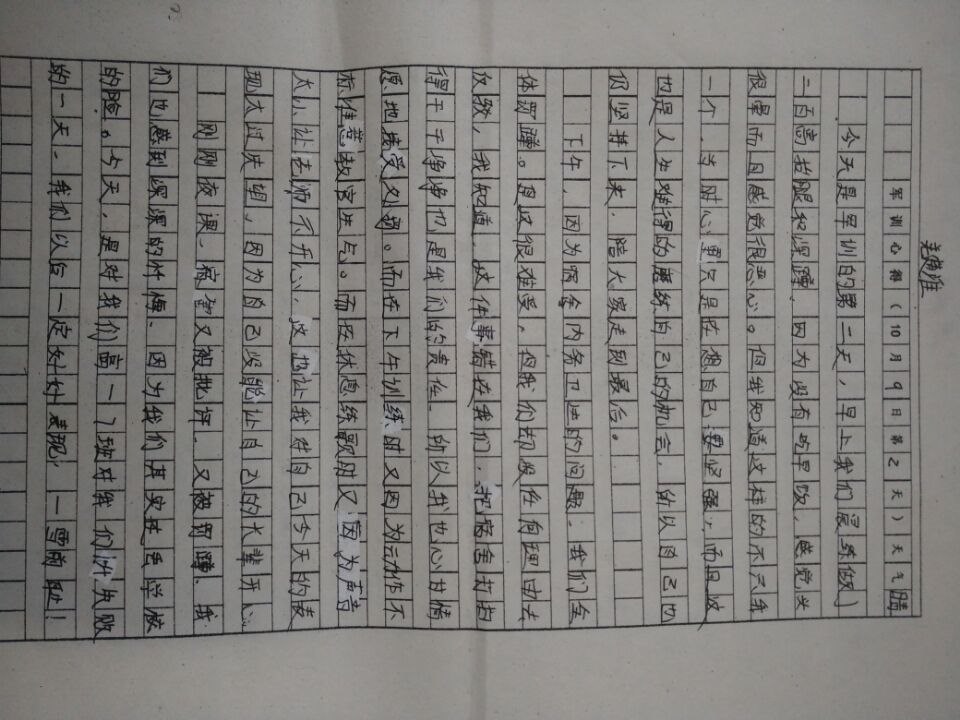 军训心得(10月9日第2天)天气晴
今天是军训的第二天,早上我们晨练做了
二百高抬腿和深蹲,因为没有吃早饭,感觉头
很晕而且感觉很恶心。但我知道这样的不只我
一个,当时心里只是在想自己要坚强,而且这
也是人生难得的磨练自己的机会,所以自己也
仍坚持下来,陪大家走到最后。
下午,因为宿舍内务卫生的问题,我们全
体罚蹲。且这很难受,但我们却没任何理由去
仅致,我知道,这件事错在我们,把宿舍打扫
得干干净净也是我们的责任,所以我也心甘情
愿地接受处罚。而在下午训练时又因为动作不
标准惹教官生气。而在休息练歌时又因为声音
太小让老师不开心,这也让我对自己今天的表
现大过失望,因为自己没能让自己的长辈开心
刚刚夜课,宿舍又被批评,又被罚蹲,我
们也感到深深的忏悔,因为我们其实连丢学校
的脸。今天,是对我们高一7班对我们失败
的一天,我们以后一定好好表现,一雪前耻!